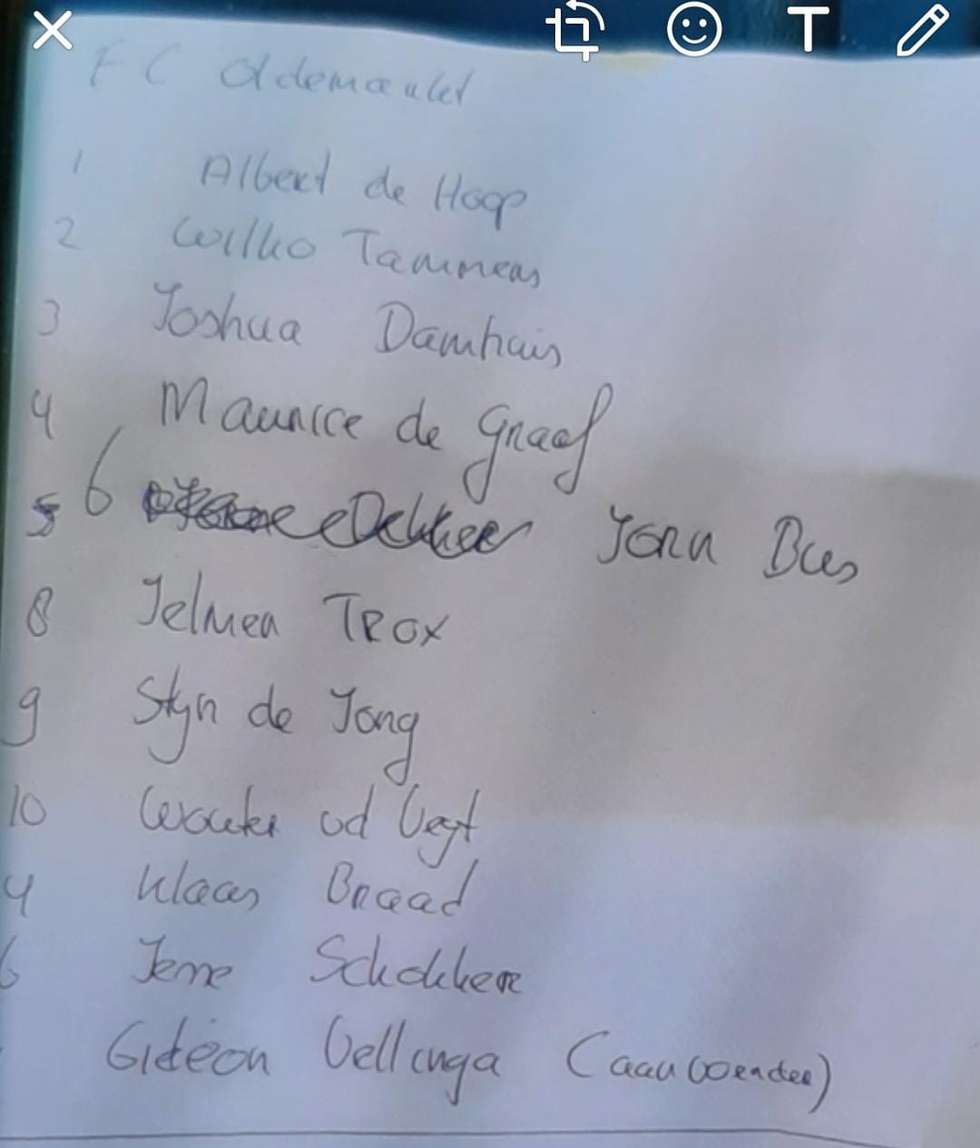 FC Oldemarkt
1 Albert de Hoop
2 Wilko Tammens
3 Joshua Damhuis
4 Maurice de Graaf
5 6 Dekker Jorn Bos
8 Jelmer Trox
9 Styn de Jong
10 Wouter vd Vegt
4 Klaas Braad
6 Jerre Schokker
Gideon Vellinga (aanvoerder)